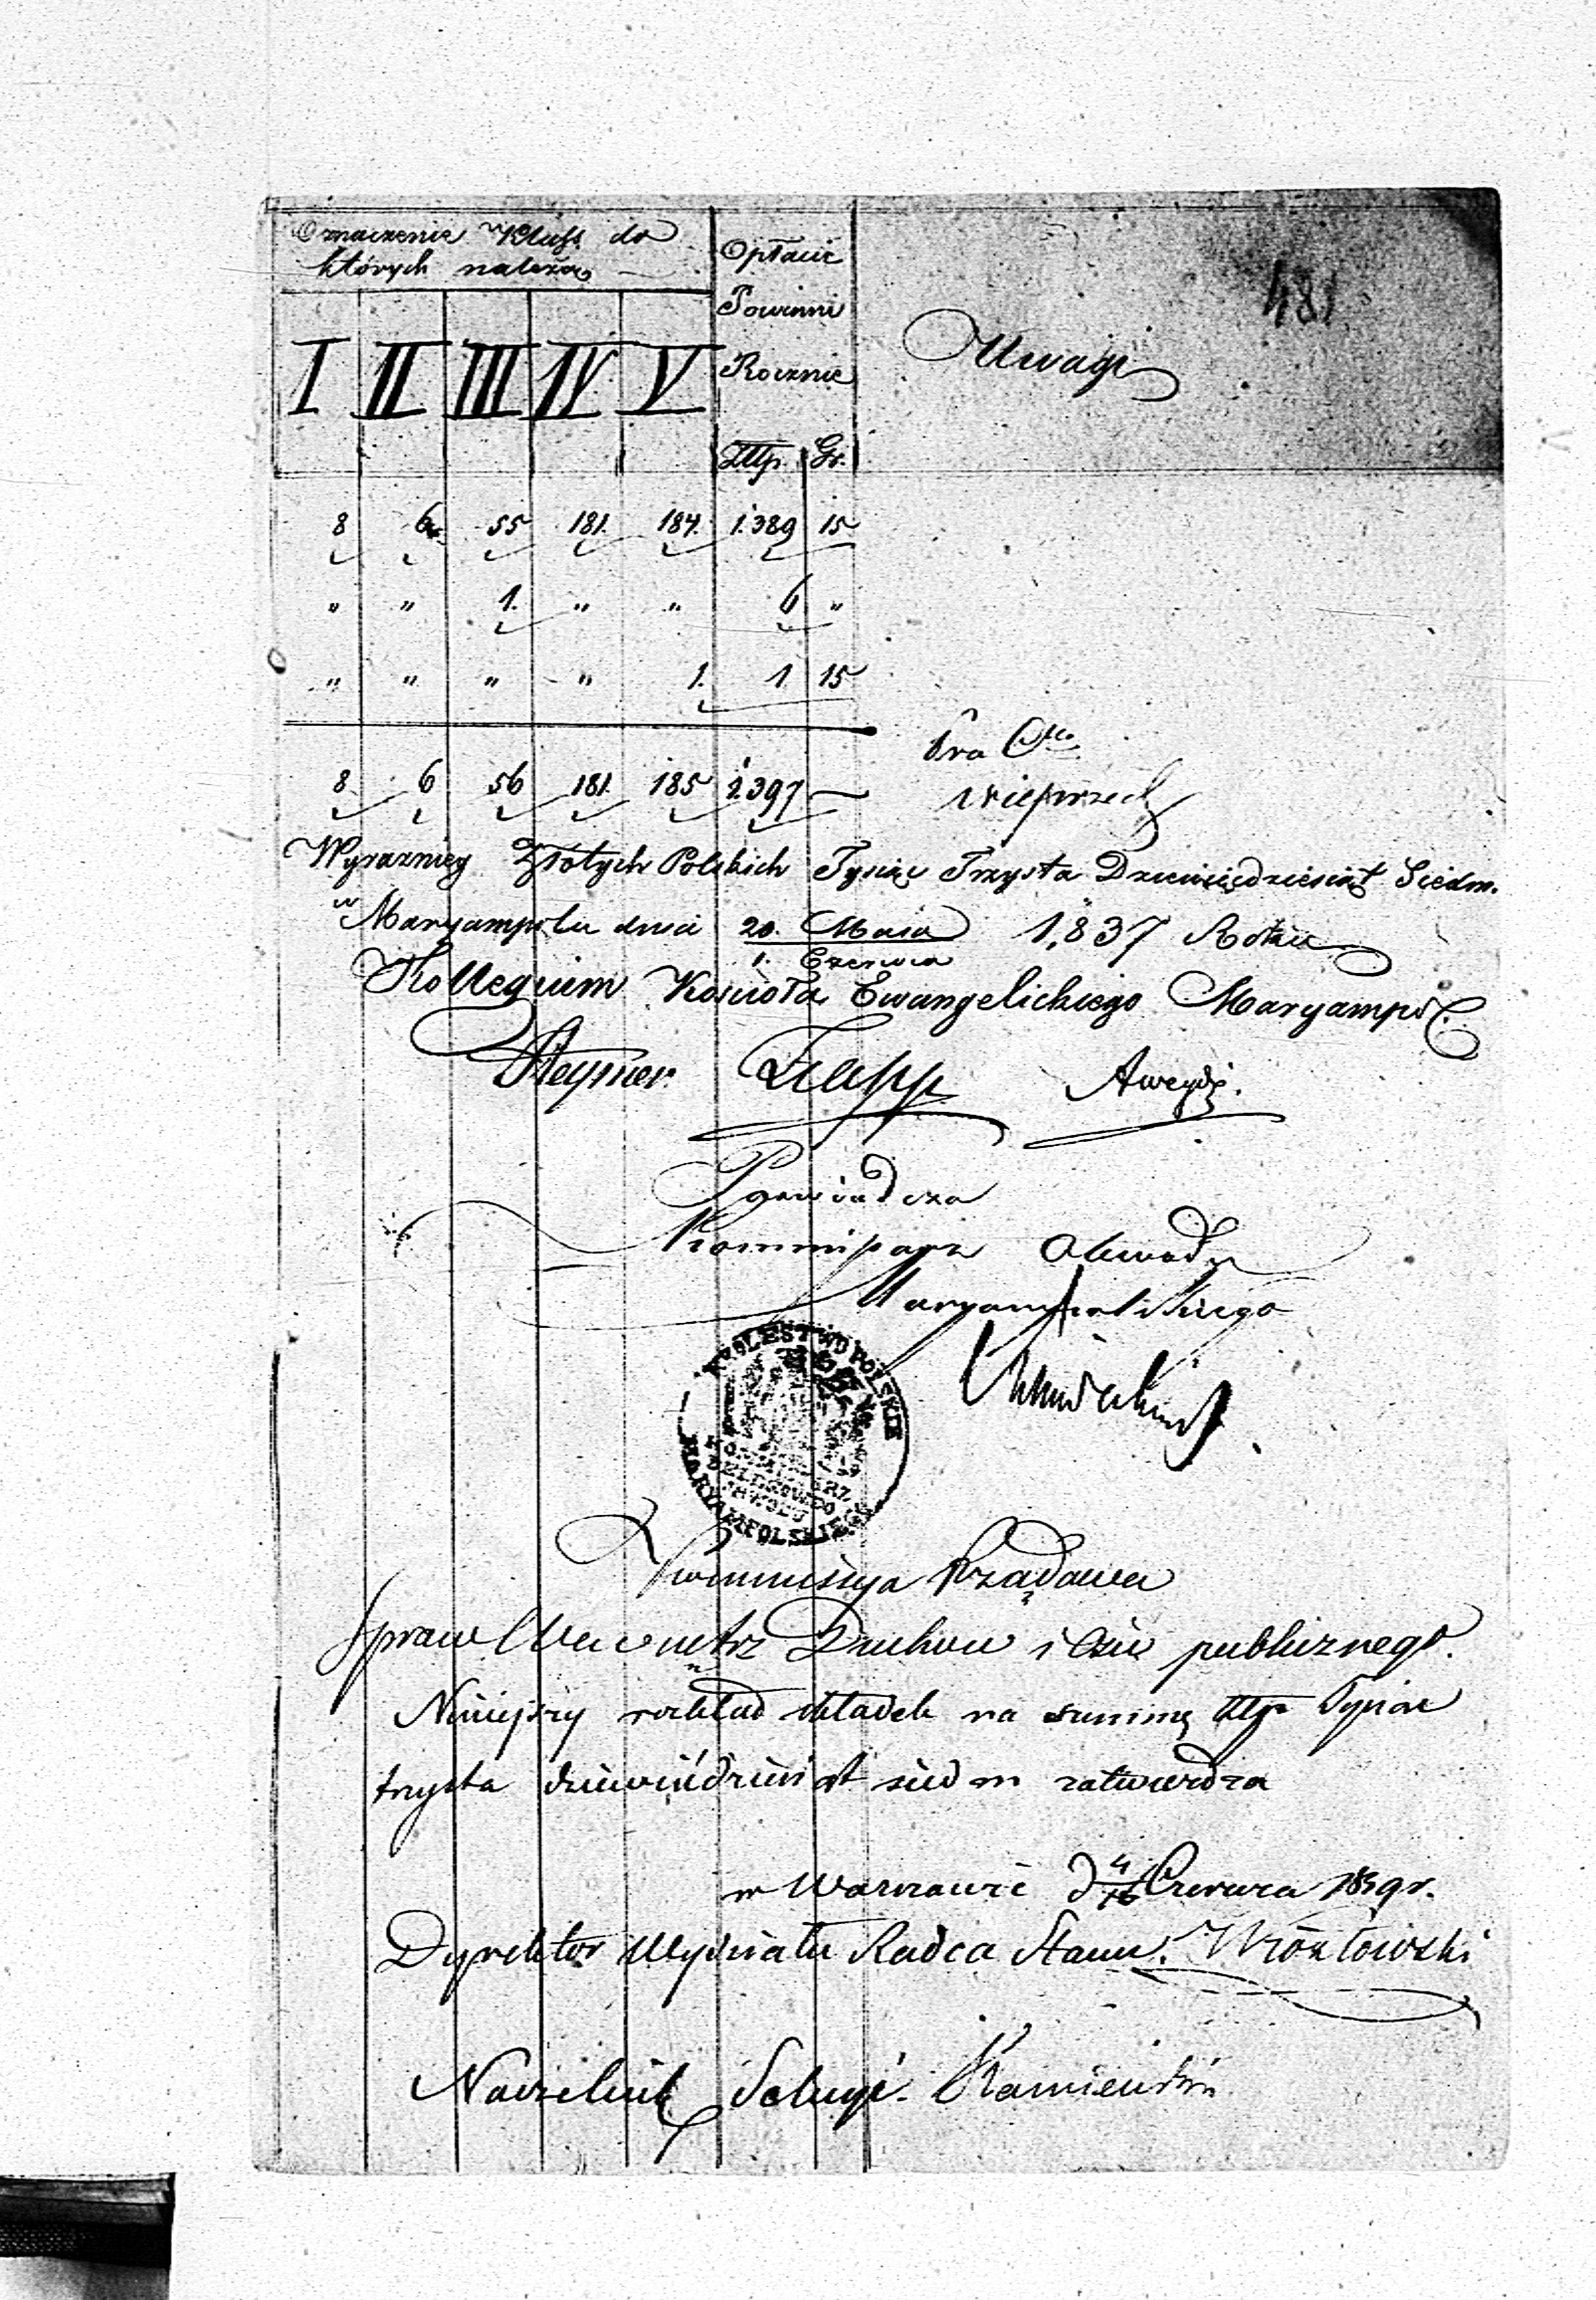 481
Oznaczenie Klass do
których należą
Opłacić
Powinni
Rocznie
Uwagi
I II III IV V
Złlp. Gr.
8 6 55 181. 184. 1.389 15
" " 1. " " 6 "
" " " " 1. 1 15
8 6 56 181. 185 1.397 —
Wyrazniey Złotych Polskich Tysiąc Trzysta Dziewiędziesiąt Siedm.
w Maryampolu dnia 20. Maia 1,837 Roku
1. Czerwca
Kollegium Kościoła Ewangelickiego Maryampol.
Poswiadcza
Kommissarz Obwodu
Maryampolskiego
KROLESTWO POLSKIE
OBWODU
MARYAMPOLSKIEGO
Kommissya Rządowa
Spraw Wewnętrz Duchow i Ośw publicznego.
Niniejszy rozkład składek na summę złlp Tysiąc
trzysta dziewiędziesiąt siedm zatwierdza
w Warszawie d 4/16 Czerwca 1839 r.
Dyrektor Wydziału Radca Stanu.
Naczelnik Sekcyi.